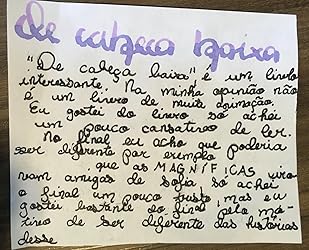 de cabeça baixa
"De cabeça baixa" é um livro
interessante. Na minha opinião não
é um livro de muita animação.
Eu gostei do livro só achei
um pouco cansativo de ler.
No final eu acho que poderia
ser diferente por exemplo
que as MAGNÍFICAS vira
vam amigas de sofia só achei
o final um pouco justo, mas eu
gostei bastante do final pelo mo-
tivo de ser diferente das histórias
desse